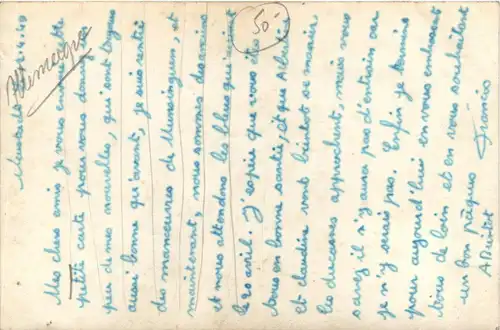 4.49
Mes chers amis je vous envoie cette
petite carte pour vous donner
peu de mes nouvelles, qui sont toujours
aussi bonne qu'avant, je suis rentré
des manœuvres de Munsingen, et
maintenant, nous sommes des anciens
et nous attendons les bleus qui
le 20 avril. J'espère que vous êtes
tous en bonne santé, et que Albert
et Claudie vont bientôt se marier
les ducasses approchent, mais vous
savez il n'y aura pas d'entrain car
je n'y serais pas. Enfin je termine
pour aujourd'hui en vous embrassant
tous de loin et en vous souhaitant
un bon pâques Francis
A Bientot
Allemagne
50-